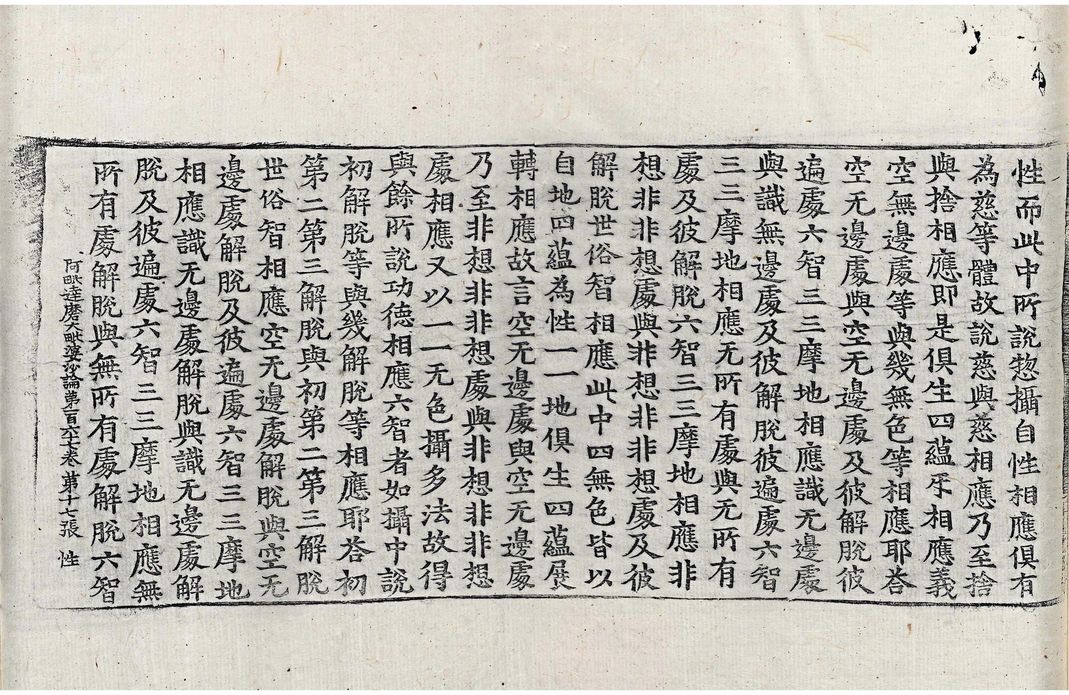 性而此中所說惣攝自性相應俱有
為慈等體故說慈與慈相應乃至捨
與捨相應即是俱生四蘊㸦相應義
空無邊處等與幾無色等相應耶荅
空无邊處與空无邊處及彼解脫彼
遍處六智三三摩地相應識无邊處
與識無邊處及彼解脫彼遍處六智
三三摩地相應无所有處與无所有
處及彼解脫六智三三摩地相應非
想非非想處與非想非非想處及彼
解脫世俗智相應此中四無色皆以
自地四蘊為性一一地俱生四蘊展
轉相應故言空无邊處與空无邊處
乃至非想非非想處與非想非非想
處相應又以一一无色攝多法故得
與餘所說功德相應六智者如攝中說
初解脫等與幾解脫等相應耶荅初
第二第三解脫與初第二第三解脫
世俗智相應空无邊處解脫與空无
邊處解脫及彼遍處六智三三摩地
相應識无邊處解脫與識无邊處解
脫及彼遍處六智三三摩地相應無
所有處解脫與無所有處解脫六智
阿毗達磨大毗婆沙論第百卷 第十七張 性